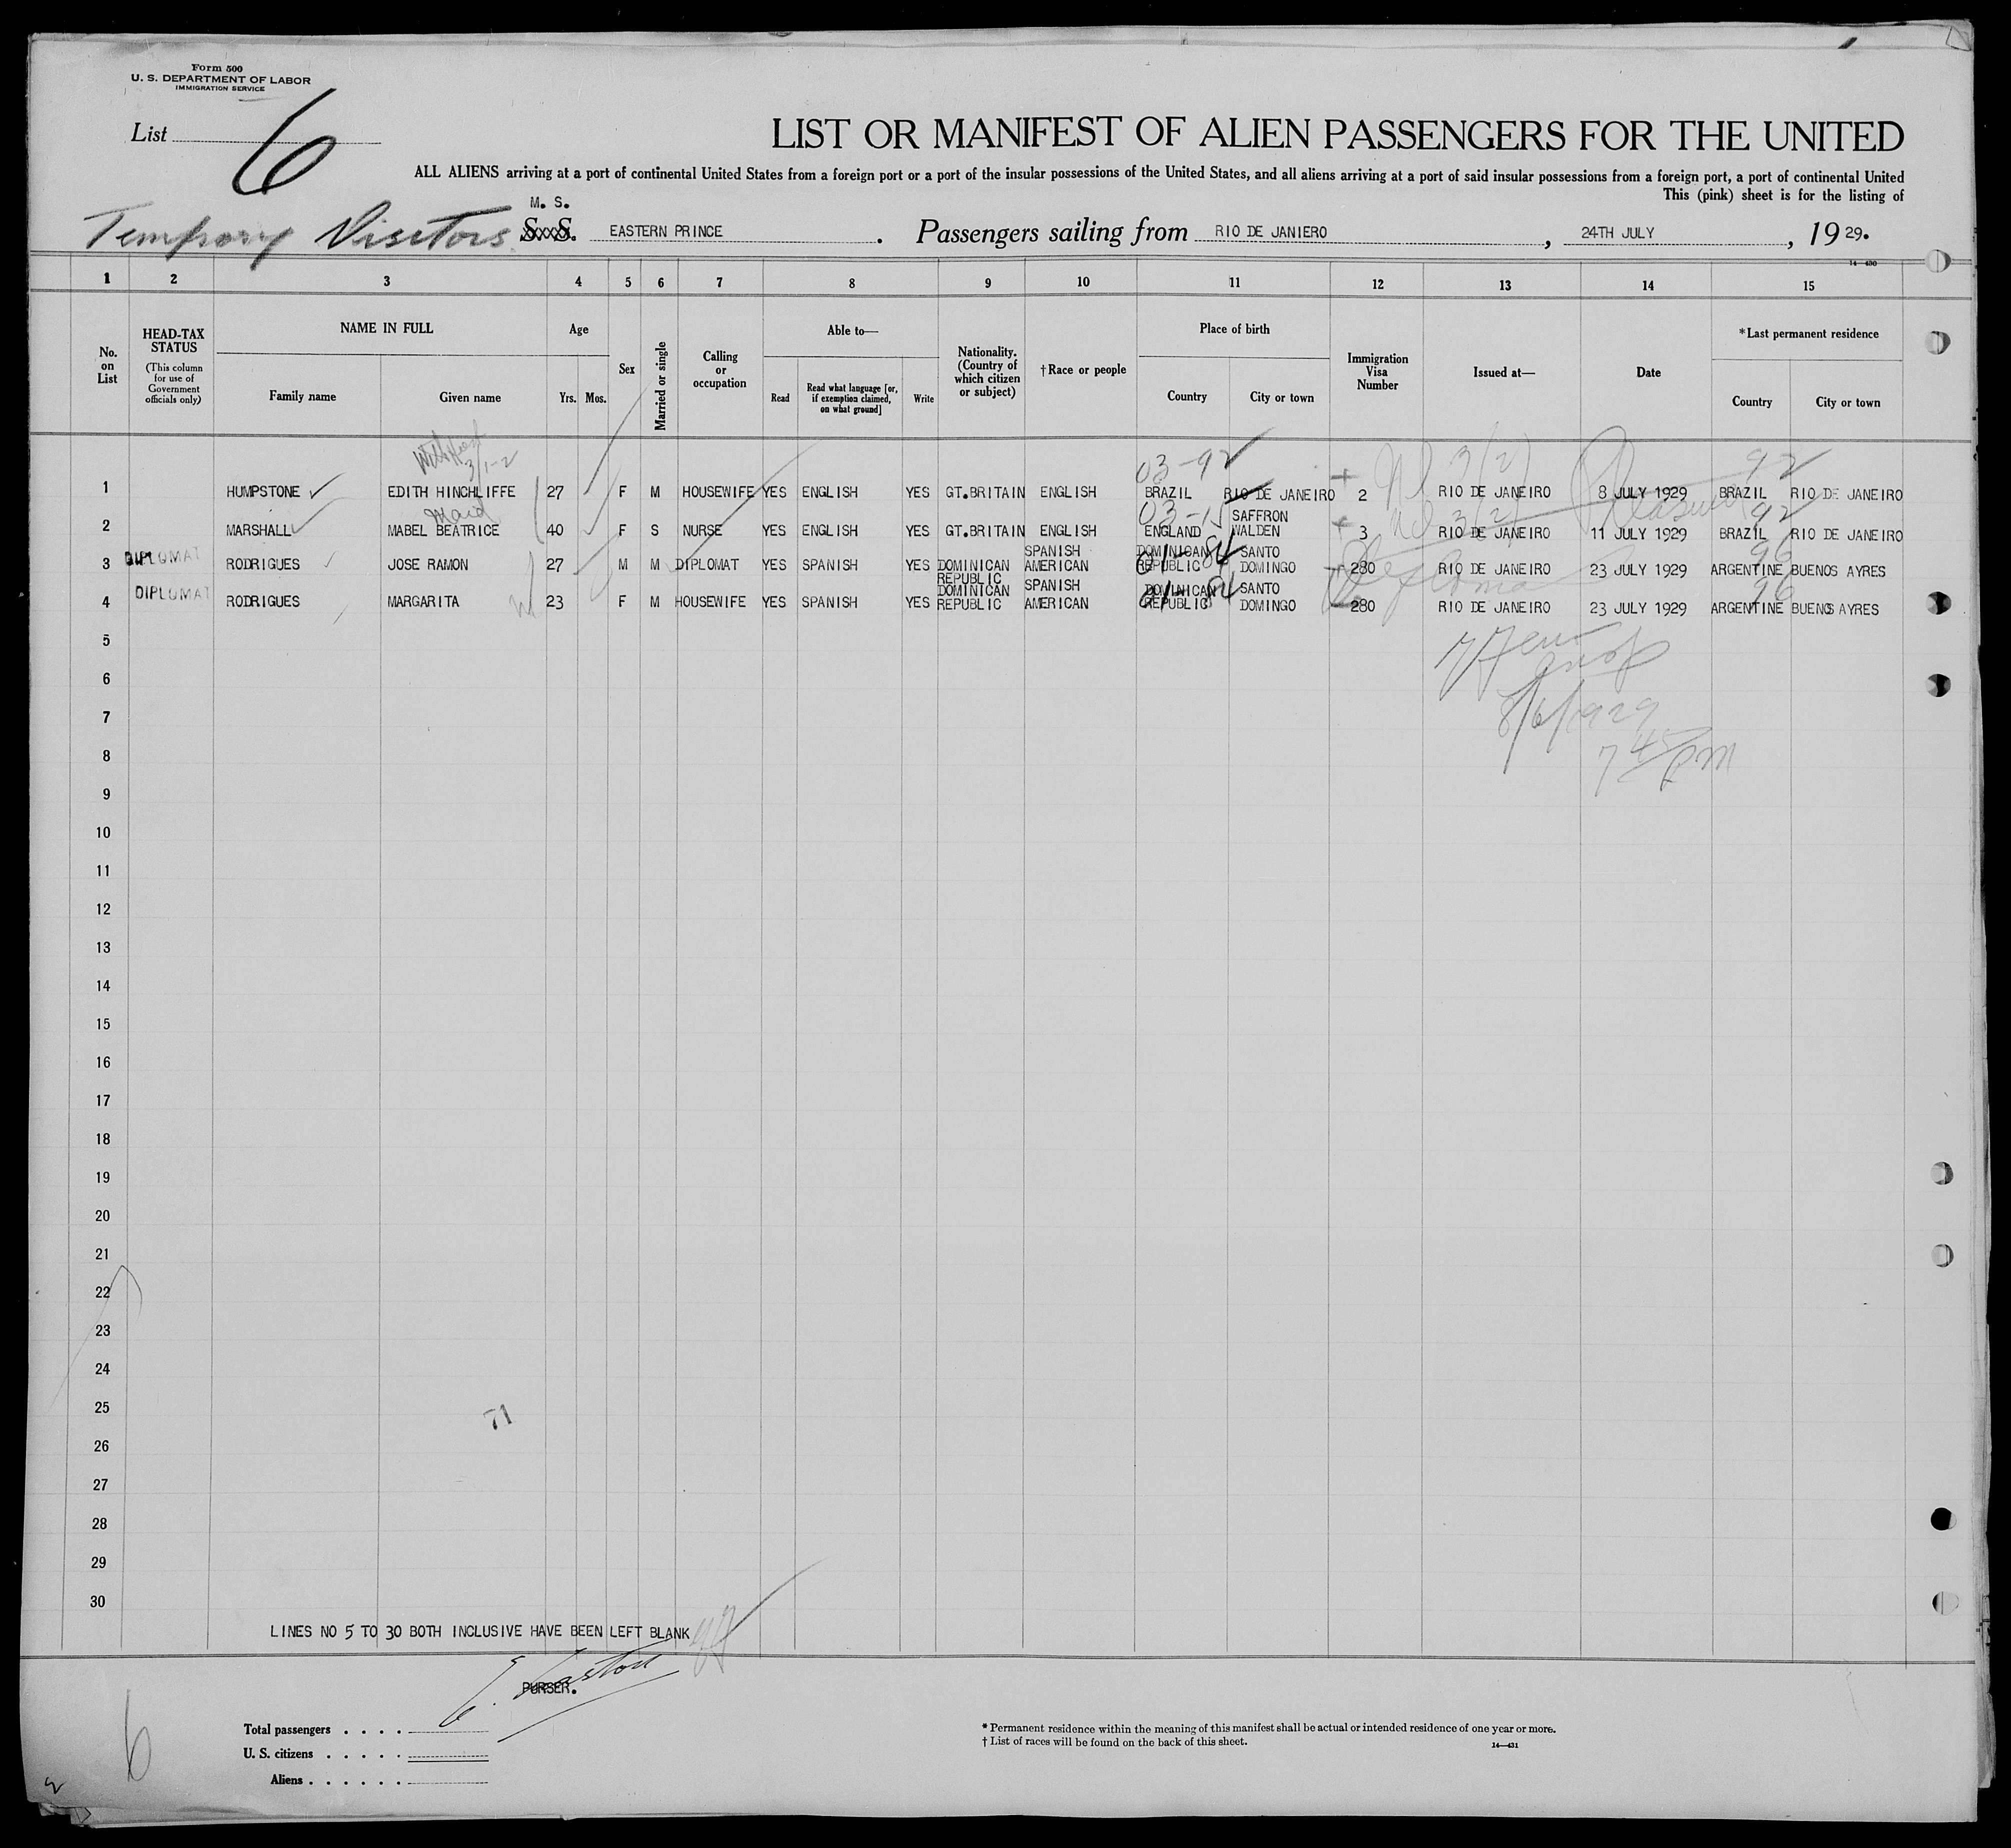 Form 500
U. S. DEPARTMENT OF LABOR
IMMIGRATION SERVICE
List 6
LIST OR MANIFEST OF ALIEN PASSENGERS FOR THE UNITED
ALL ALIENS arriving at a port of continental United States from a foreign port or a port of the insular possessions of the United States, and all aliens arriving at a port of said insular possessions from a foreign port, a port of continental United
This (pink) sheet is for the listing of
Temporary Visitors
M. S.
S. S. EASTERN PRINCE. Passengers sailing from RIO DE JANIERO, 24TH JULY, 19 29.
14—430
1 2 3 4 5 6 7 8 9 10 11 12 13 14 15
No. on List
HEAD-TAX STATUS (This column for use of Government officials only)
NAME IN FULL
Family name Given name
Age
Yrs. Mos.
Sex
Married or single
Calling or occupation
Able to—
Read Read what language [or, if exemption claimed, on what ground] Write
Nationality. (Country of which citizen or subject)
†Race or people
Place of birth
Country City or town
Immigration Visa Number
Issued at—
Date
*Last permanent residence
Country City or town
3/1-2
03-92 92
1 HUMPSTONE EDITH HINCHLIFFE 27 F M HOUSEWIFE YES ENGLISH YES GT.BRITAIN ENGLISH BRAZIL RIO DE JANEIRO 2 3(2) RIO DE JANEIRO 8 JULY 1929 BRAZIL RIO DE JANEIRO
maid 03-15 92
2 MARSHALL MABEL BEATRICE 40 F S NURSE YES ENGLISH YES GT.BRITAIN ENGLISH ENGLAND SAFFRON WALDEN 3 3(2) RIO DE JANEIRO 11 JULY 1929 BRAZIL RIO DE JANEIRO
DIPLOMAT 96
3 RODRIGUES JOSE RAMON 27 M M DIPLOMAT YES SPANISH YES DOMINICAN REPUBLIC SPANISH AMERICAN DOMINICAN REPUBLIC SANTO DOMINGO 280 RIO DE JANEIRO 23 JULY 1929 ARGENTINE BUENOS AYRES
DIPLOMAT 96
4 RODRIGUES MARGARITA 23 F M HOUSEWIFE YES SPANISH YES DOMINICAN REPUBLIC SPANISH AMERICAN DOMINICAN REPUBLIC SANTO DOMINGO 280 RIO DE JANEIRO 23 JULY 1929 ARGENTINE BUENOS AYRES
5
6
insp
7
8/6/1929
8
7 45 PM
9
10
11
12
13
14
15
16
17
18
19
20
21
22
23
24
25
71
26
27
28
29
30
LINES NO 5 TO 30 BOTH INCLUSIVE HAVE BEEN LEFT BLANK
PURSER.
6
Total passengers . . . .
U. S. citizens . . . . .
Aliens . . . . . .
* Permanent residence within the meaning of this manifest shall be actual or intended residence of one year or more.
† List of races will be found on the back of this sheet.
14—431